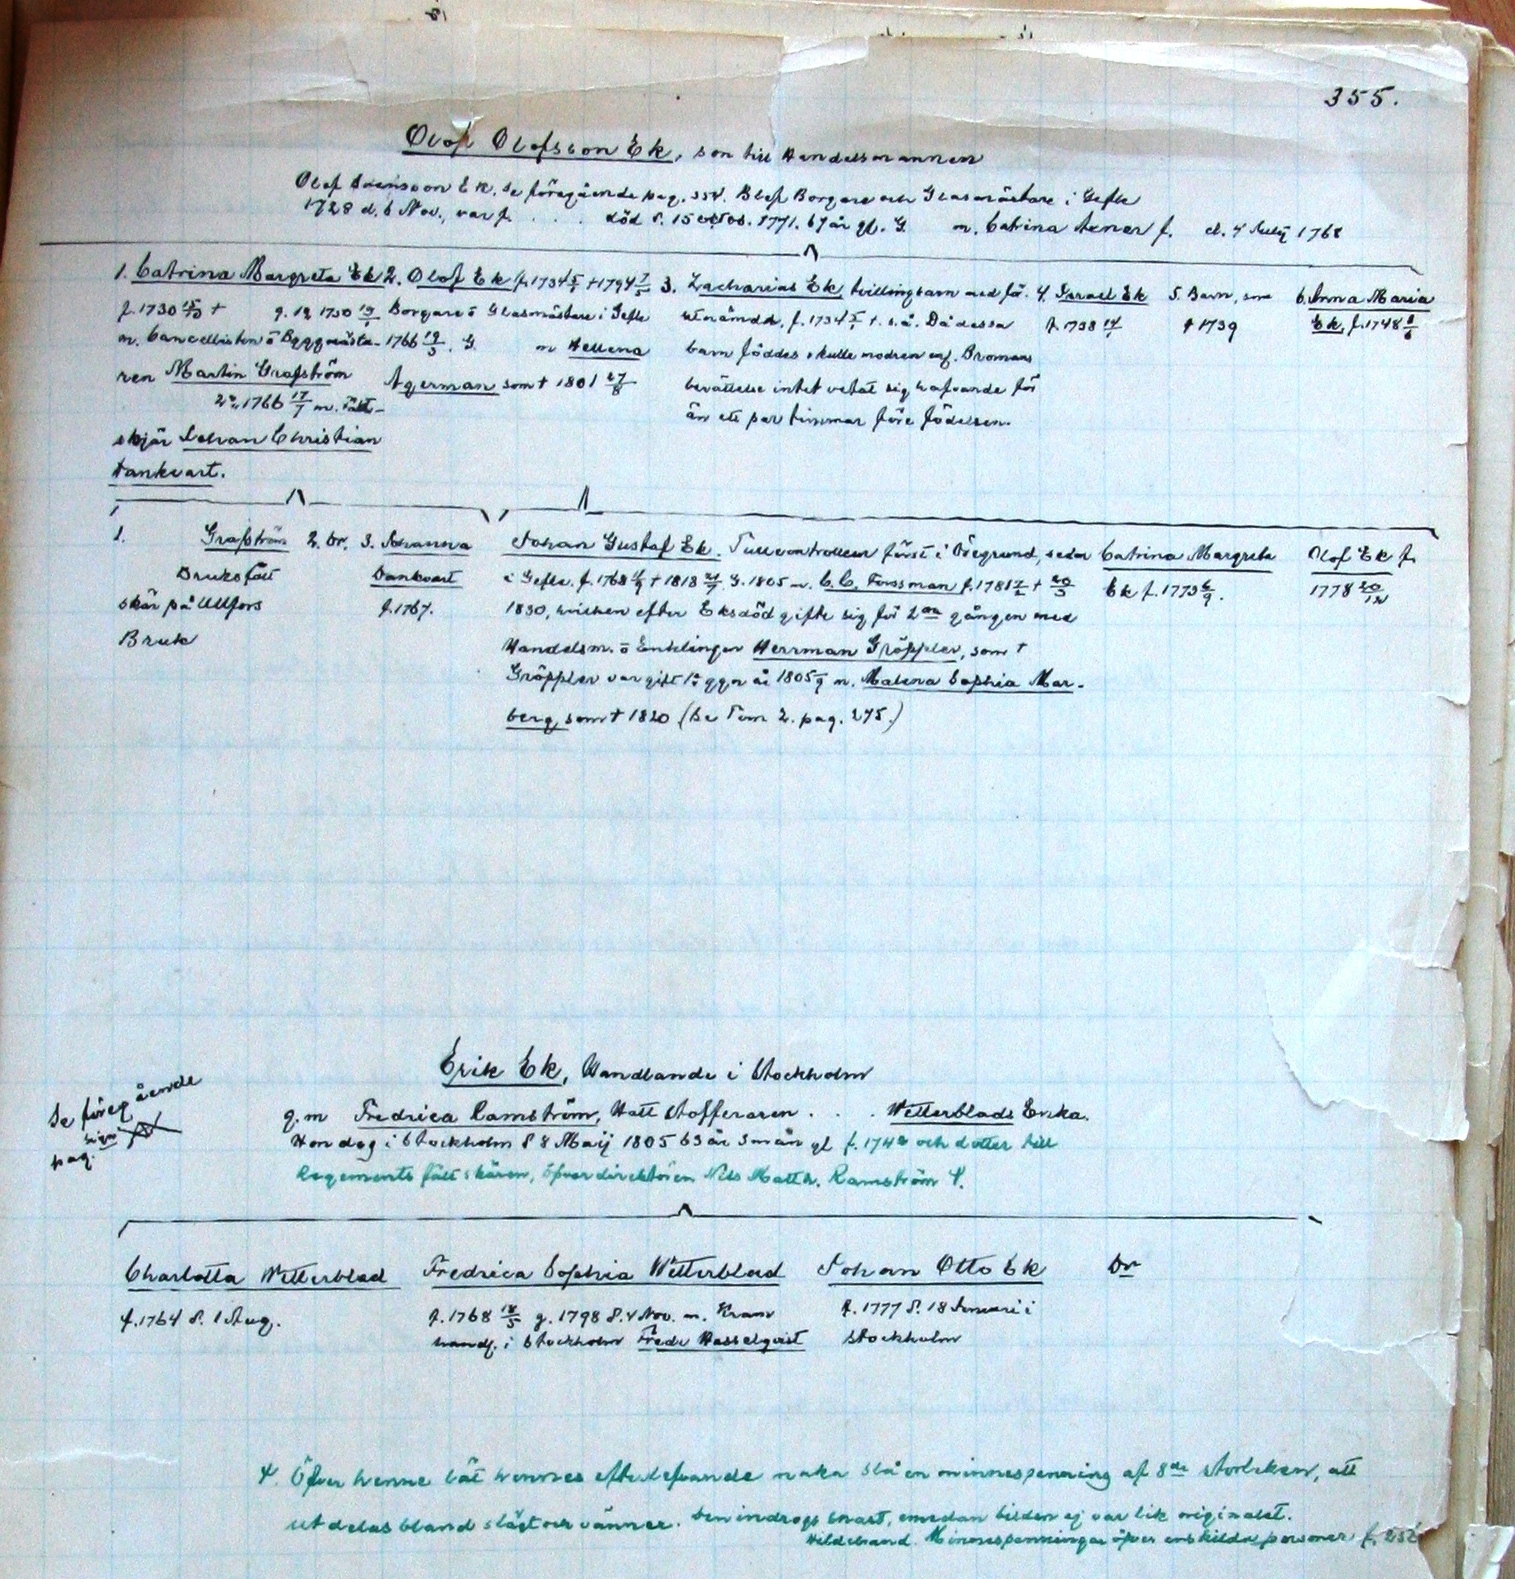 355.
Olof Olofsson Ek, son till Handelsmannen
Olof Svensson Ek, se föregående pag. 354. Blef Borgare och Glasmästare i Gefle
1728 d. 6 Nov., var f. . . . . död d. 15 1771. 67 år gl. G. m. Catrina f. d. 4 1768
1. Catrina Margreta Ek
f. 1730 + g. 1g 1750
m. Cancellisten ö Byggmästa-
ren Martin Grafström
2° 1766 17/7 m. Fält-
skjär Johan Christian
Dankvart.
2. Olof Ek f. 1734 5/1 + 1794 7/5
Borgare ö Glasmästare i Gefle
1766 19/3. G. m Hellena
Agerman som + 1801 27/8
3. Zacharias Ek tvillingbarn med för.
utnämnda, f. 1734 5/1 + s. å. Då dessa
barn föddes skulle modren enl. Bromans
berättelse intet vetat sig hafvande för
än ett par timmar före födelsen.
4. Israel Ek
f. 1738 14/1
5. Barn, som
+ 1739
6. Anna Maria
Ek, f. 1748
1. Grafström
Bruksfält
skär på Ullfors
Bruk
2. Dr.
3. Johanna
Dankvart
f. 1767.
Johan Gustaf Ek. Tullcontrolleur först i Öregrund, sedan
i Gefle. f. 1768 + 1818 G. 1805 m. C. C. Forssman f. 1781 + 20/3
1830, hvilken efter Eks död gifte sig för 2an gången med
Handelsm. ö Enklingen Herrman Gröppler, som +
Gröppler var gift 1a ggn år 1805 m. Malena Sophia Mar-
berg, som + 1820 (Se Tom 2. pag. 275.)
Catrina Margreta
Ek f. 1773 6/9.
Olof Ek f.
1778 20/12
Erik Ek, Handlande i Stockholm
Se föregående
pag.
g. m Fredrica Ramström, Hatt Stofferaren . . . Wetterblads Enka.
Hon dog i Stockholm d 8 Maij 1805 63 år 3 mån gl f. 1742 och dotter till
Regements fältskären, öfverdirektören Nils Matth. Ramström ᛘ.
Charlotta Wetterblad
f. 1764 d. 1 Aug.
Fredrica Sophia Wetterblad
f. 1768 18/5 g. 1798 d. 4 Nov. m. Kram
handl. i Stockholm Fredr Hasselqvist
Johan Otto Ek
f. 1777 d. 18 Januari i
Stockholm
Dr
Öfver henne lät hennes efterlefvande maka slå en minnespenning af 8de storleken, att
utdelas bland slägt och vänner. Den indrogs snart, emedan bilden ej var lik originalet.
Hildebrand. Minnespenningar öfver enskilda personer